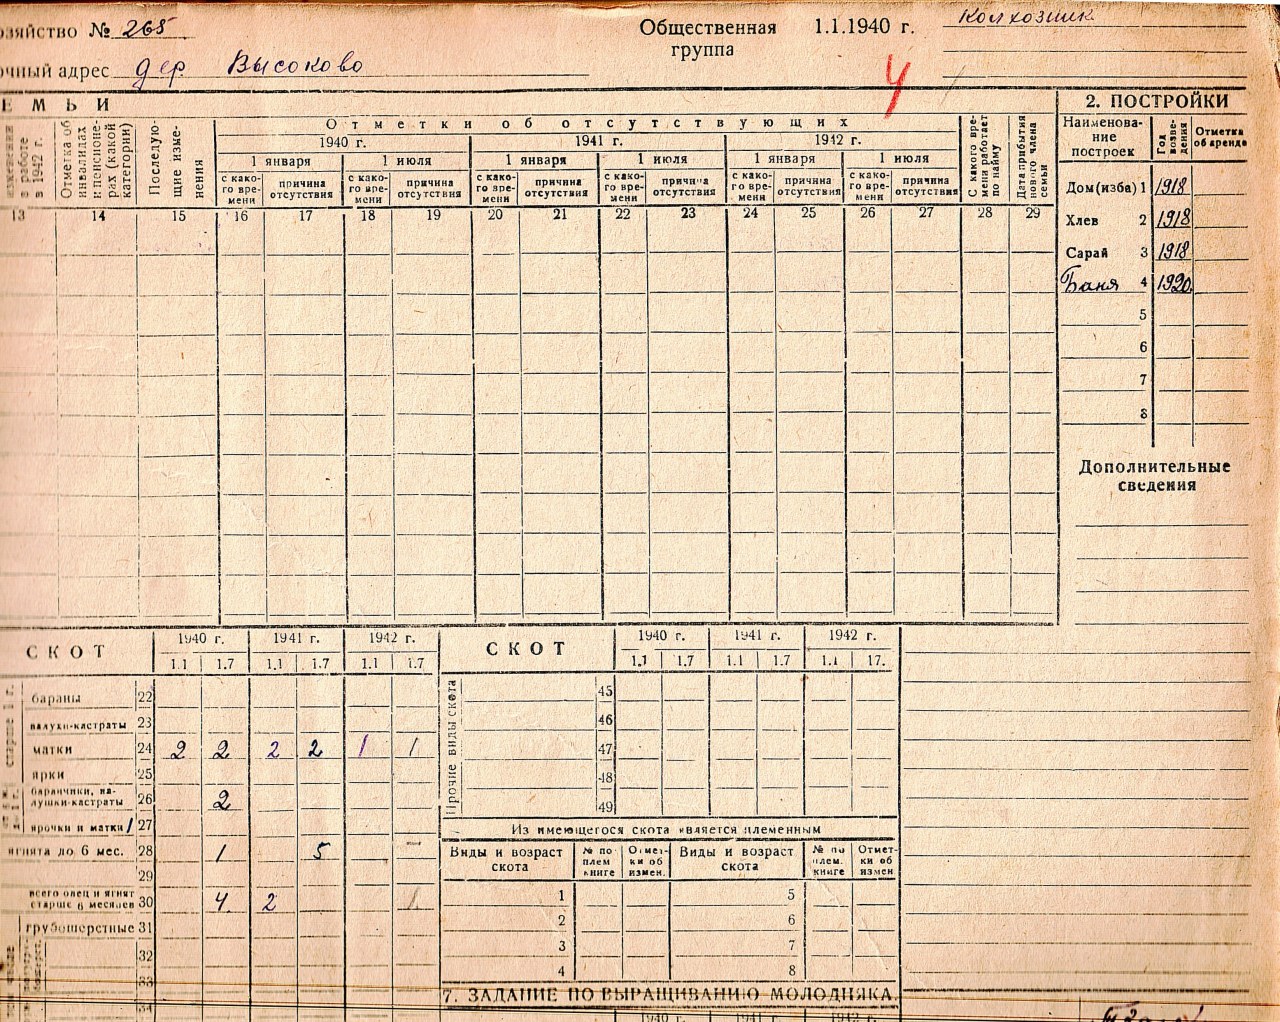 озяйство № 265
Общественная группа 1.1.1940 г. Колхозник
очный адрес дер Высоково
4
ЕМЬИ
изменения в работе в 1942 г.
Отметка об инвалидах и пенсионерах (какой категории)
Последующие изменения
Отметки об отсутствующих
1940 г. 1941 г. 1942 г.
1 января 1 июля 1 января 1 июля 1 января 1 июля
с какого времени причина отсутствия с какого времени причина отсутствия с какого времени причина отсутствия с какого времени причина отсутствия с какого времени причина отсутствия с какого времени причина отсутствия
С какого времени работает по найму
Дата прибытия нового члена семьи
13 14 15 16 17 18 19 20 21 22 23 24 25 26 27 28 29
2. ПОСТРОЙКИ
Наименование построек Год возведения Отметка об аренде
Дом (изба) 1 1918
Хлев 2 1918
Сарай 3 1918
Баня 4 1920
5
6
7
8
Дополнительные сведения
СКОТ 1940 г. 1941 г. 1942 г.
1.1 1.7 1.1 1.7 1.1 1.7
старше 1 г.
бараны 22
валухи-кастраты 23
матки 24 2 2 2 2 1 1
ярки 25
баранчики, валушки-кастраты 26 2
ярочки и матки 27
ягнята до 6 мес. 28 1 5 —
29
всего овец и ягнят старше 6 месяцев 30 4 2 1
грубошерстные 31
32
33
34
СКОТ 1940 г. 1941 г. 1942 г.
1.1 1.7 1.1 1.7 1.1 17.
Прочие виды скота
45
46
47
48
49
Из имеющегося скота является племенным
Виды и возраст скота № по плем книге Отметки об измен. Виды и возраст скота № по плем. книге Отметки об измен
1 5
2 6
3 7
4 8
7. ЗАДАНИЕ ПО ВЫРАЩИВАНИЮ МОЛОДНЯКА.
1940 г. 1941 г. 1942 г.